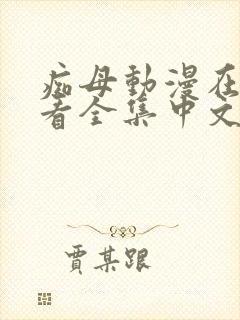 痴母動漫在
看全集中文
賈某跟